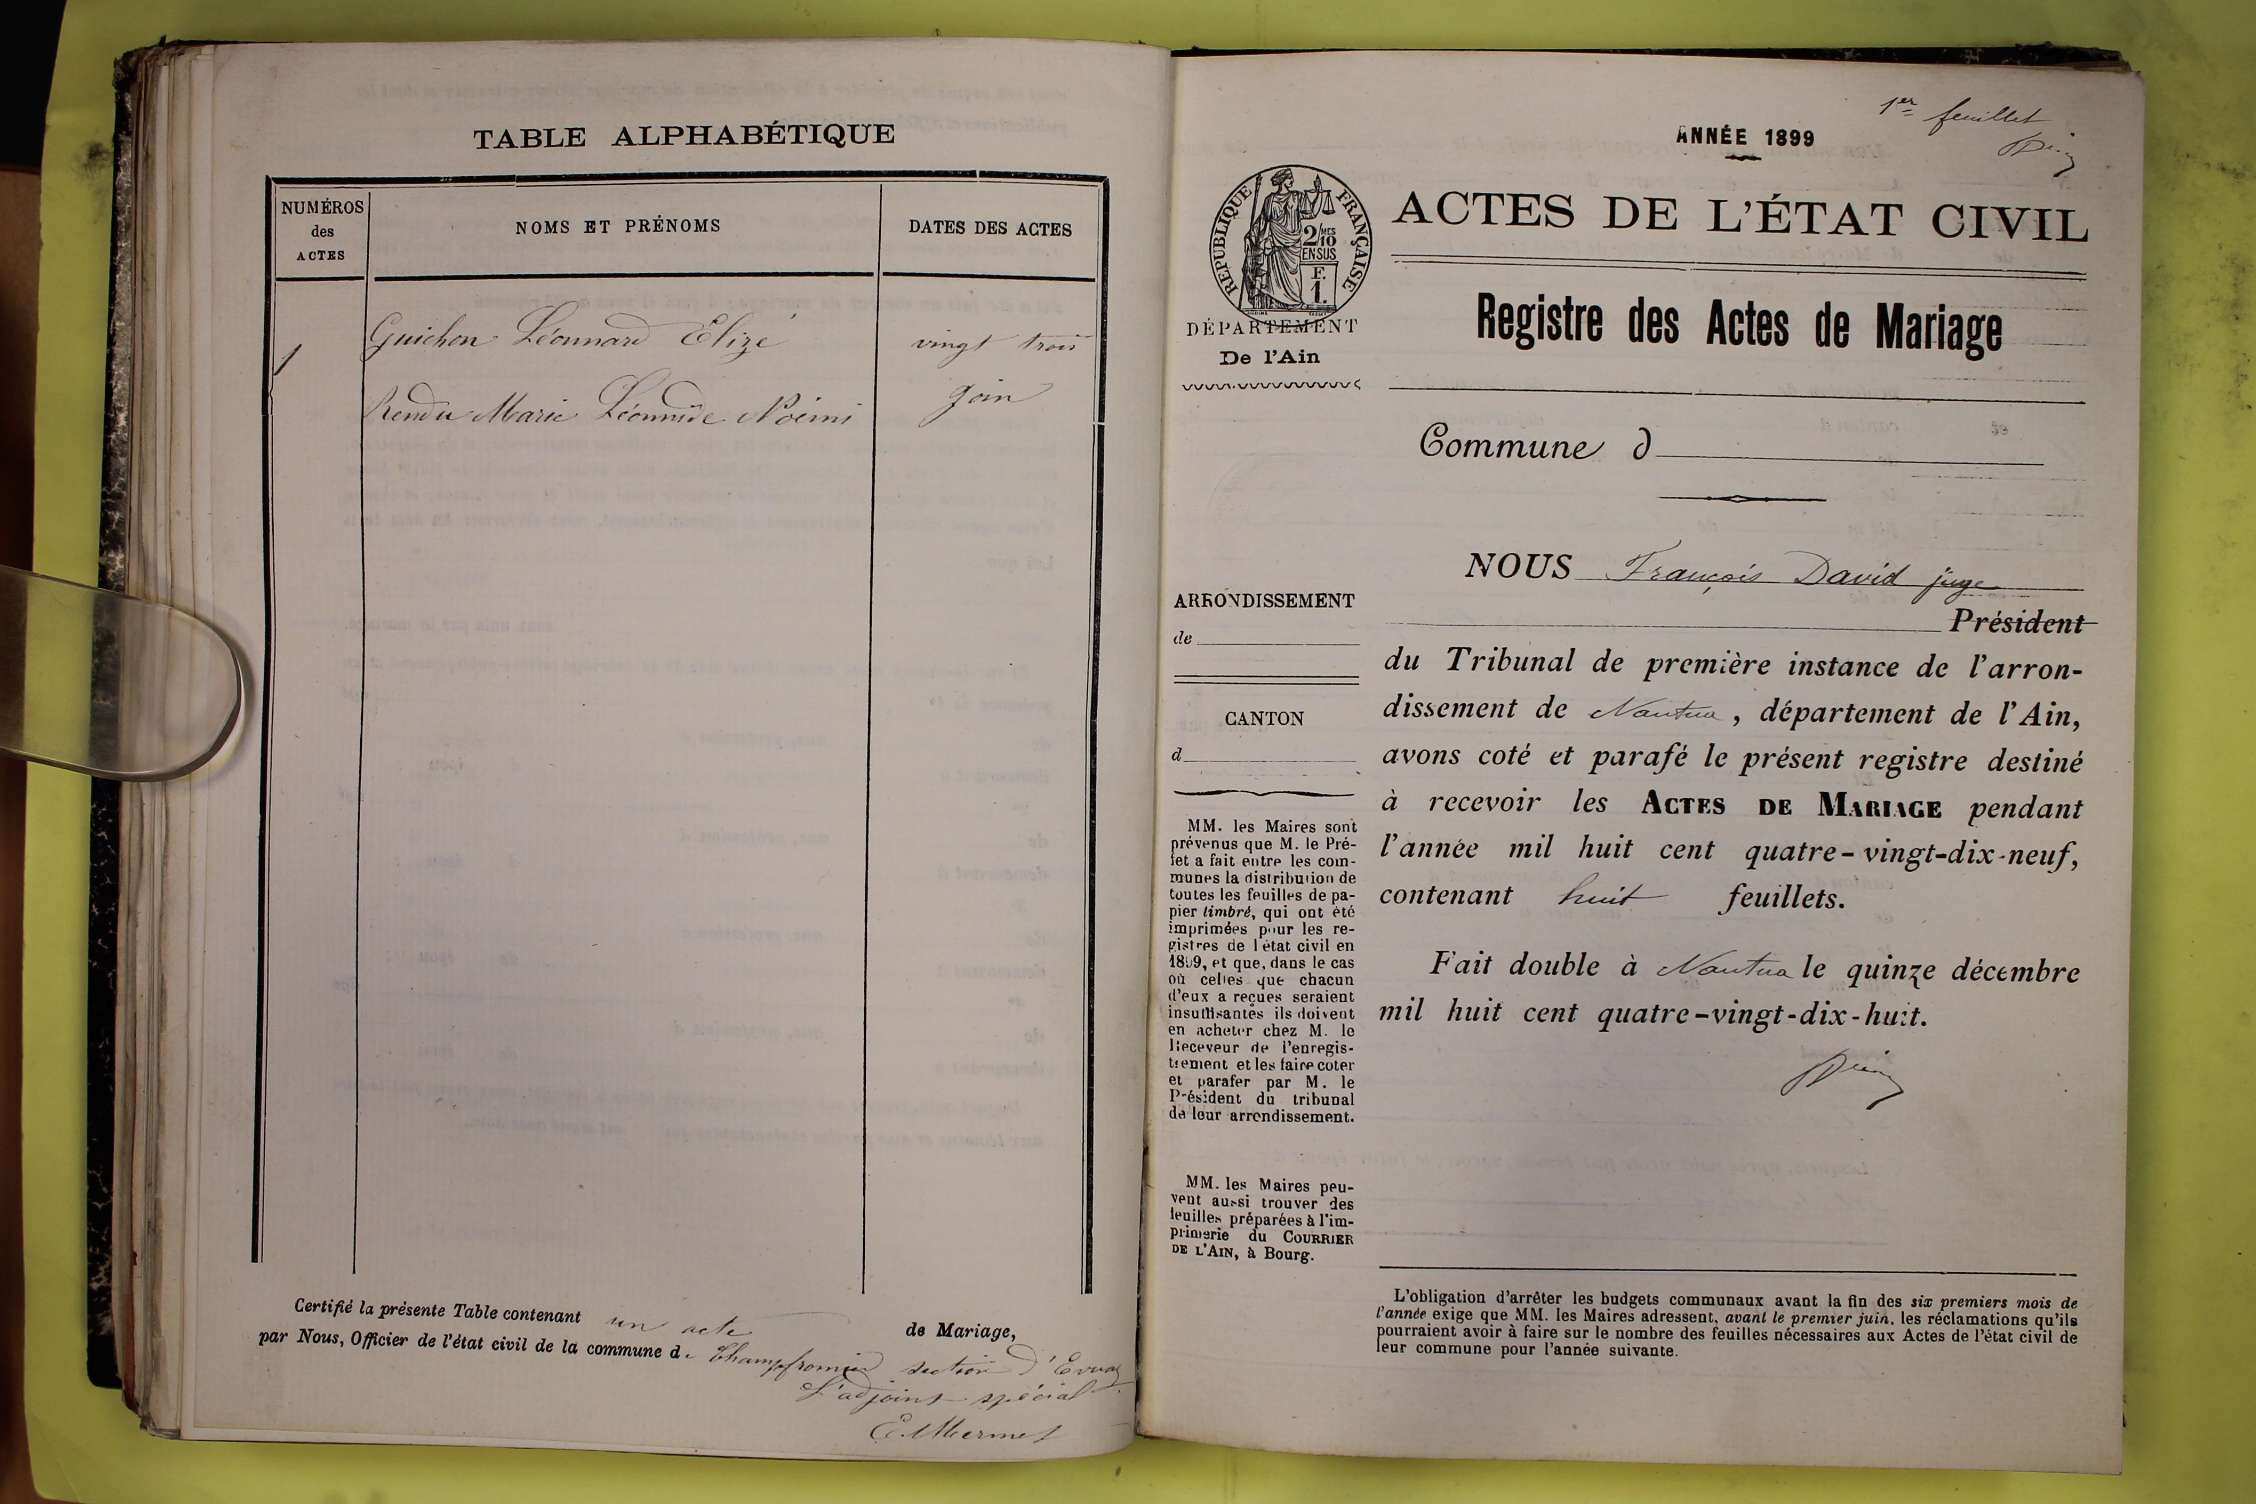 TABLE ALPHABÉTIQUE
NUMÉROS
des
ACTES
NOMS ET PRÉNOMS
DATES DES ACTES
1
Guichon Léonnard Elizé
vingt trois
Rendu Marie Léonnide Noémi
join
Certifié la présente Table contenant un acte de Mariage,
par Nous, Officier de l'état civil de la commune d. Champfromier section d'Evuaz
L'adjoint spécial
E. Mermet
1er feuillet
ANNÉE 1899
RÉPUBLIQUE FRANÇAISE
2/10
MES
EN SUS
F.
1.
DÉPARTEMENT
De l'Ain
ACTES DE L'ÉTAT CIVIL
Registre des Actes de Mariage
Commune d
ARRONDISSEMENT
de
CANTON
d
MM. les Maires sont
prévenus que M. le Pré-
fet a fait entre les com-
munes la distribution de
toutes les feuilles de pa-
pier timbré, qui ont été
imprimées pour les re-
gistres de l'état civil en
1899, et que, dans le cas
où celles que chacun
d'eux a reçues seraient
insuffisantes ils doivent
en acheter chez M. le
Receveur de l'enregis-
trement et les faire coter
et parafer par M. le
Président du tribunal
de leur arrondissement.
MM. les Maires peu-
vent aussi trouver des
feuilles préparées à l'im-
primerie du COURRIER
DE L'AIN, à Bourg.
NOUS François David juge
Président
du Tribunal de première instance de l'arron-
dissement de Nantua, département de l'Ain,
avons coté et parafé le présent registre destiné
à recevoir les ACTES DE MARIAGE pendant
l'année mil huit cent quatre-vingt-dix-neuf,
contenant huit feuillets.
Fait double à Nantua le quinze décembre
mil huit cent quatre-vingt-dix-huit.
L'obligation d'arrêter les budgets communaux avant la fin des six premiers mois de
l'année exige que MM. les Maires adressent, avant le premier juin, les réclamations qu'ils
pourraient avoir à faire sur le nombre des feuilles nécessaires aux Actes de l'état civil de
leur commune pour l'année suivante.